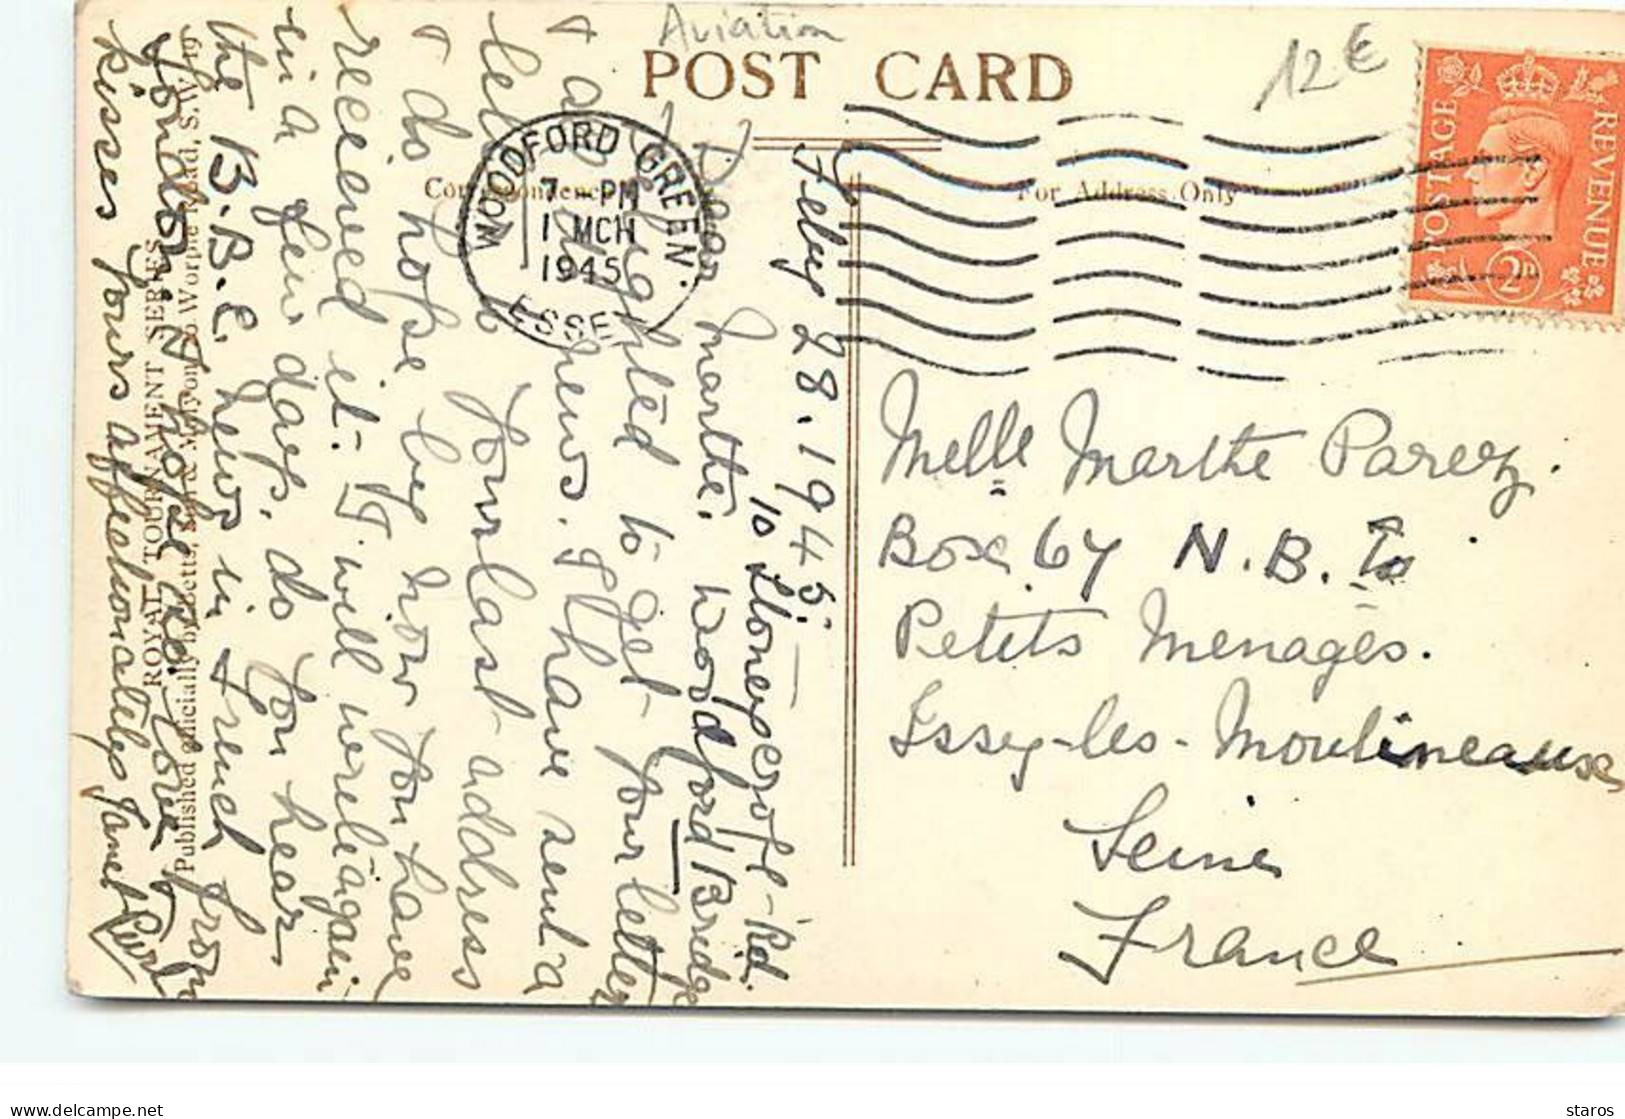 Aviation
12 €
POST CARD
Correspondence
For Address Only
WOODFORD GREEN.
7 - PM
1 MCH
1945
ESSEX
POSTAGE
REVENUE
2D
Feby 28. 1945.
10 Stoneycroft - Rd.
Woodford Bridge
Dear Marthe.
Delighted to get your letter
& all news. I have sent a
letter to your last address
& do hope by now you have
received it - I will write again
in a few days. do you hear
the B.B.C. news in French from
London. I hope so. Love
kisses yours affectionately Janet
Melle Marthe Parez.
Box 67 N.B. to
Petits Menages.
Issy-les-Moulineaux
Seine
France
ROYAL TOURNAMENT SERIES
Published officially by Worple Road, S.W.19
delcampe.net
staros